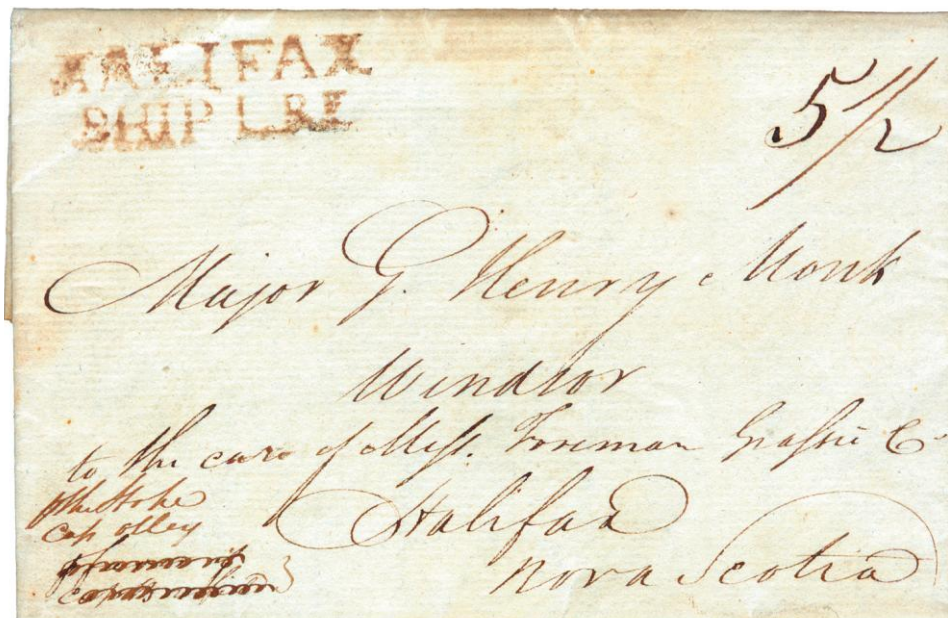 HALIFAX
SHIP LRE
5/2
Major G. Henry Monk
Windsor
to the care of Mess. Foreman Grassie Co
Halifax
Nova Scotia
Cap Olley